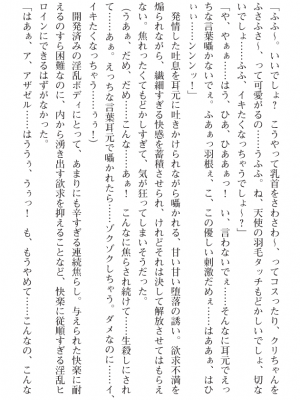 「ふふー。いいでしょ？　こうやって乳首をさわさわ～、ってコスったり、クリちゃんを
ふさふさ～、って可愛がるの……ふふ。ね、天使の羽毛タッチもどかしいでしょ、切な
いでしょ……ふふ、イキたくなっちゃうでしょ～？」
「や、やぁ……はう、ひあ、ひああぁっ！　い、言わないでぇ……そんなに耳元でえっ
ちな言葉囁かないでぇ。ふあぁっ羽根ぇ、こ、この優しい刺激だめぇ……はああぁ、はひ
ぃ……ンンンッ！」
発情した吐息を耳元に吐きかけられながら囁かれる、甘い甘い堕落の誘い。欲求不満を
煽られながら、繊細すぎる快感を蓄積させられ、けれどそれは決して解放させてはもらえ
ない。焦れったくてもどかしすぎて、気が狂ってしまいそうだった。
（うあぁ、だめ、だめ……こんな……あぁ！　こんなに焦らされ続けて……生殺しにされ
て……あぁ。えっちな言葉耳元で囁かれたら……ゾクゾクしちゃう。ダメなのに……イ、
イキたくなっちゃう……ぅぅ！）
開発済みの淫乱ボディにとって、あまりにも辛すぎる連続焦らし。与えられた快楽に耐
えるのすら困難なのに、内から湧き出す欲求を抑えることなど、快楽に従順すぎる淫乱ヒ
ロインにできるはずがなかった。
「はあぁ、ア、アザゼル……はううぅ、うぅっ！　も、もうやめて……こんなの、こんな